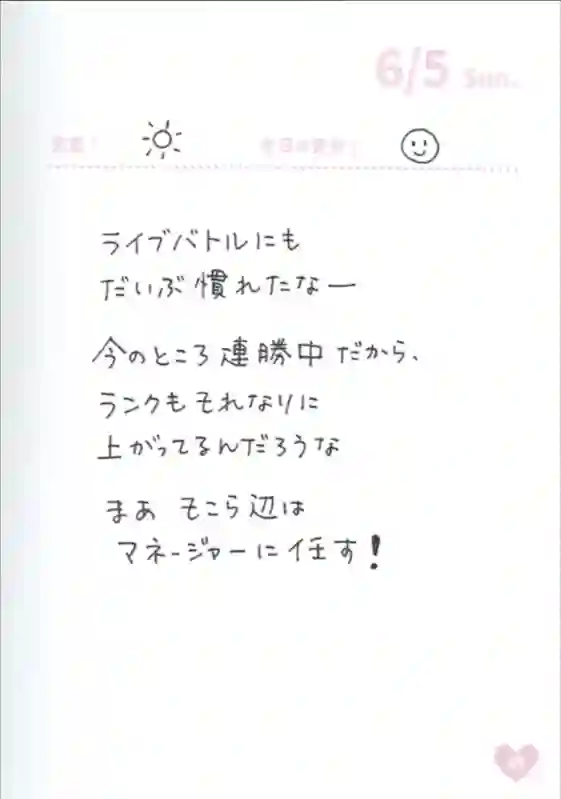 6/5 Sun.
ライブバトルにも
だいぶ慣れたなー
今のところ連勝中だから、
ランクもそれなりに
上がってるんだろうな
まあ そこら辺は
マネージャーに任す!